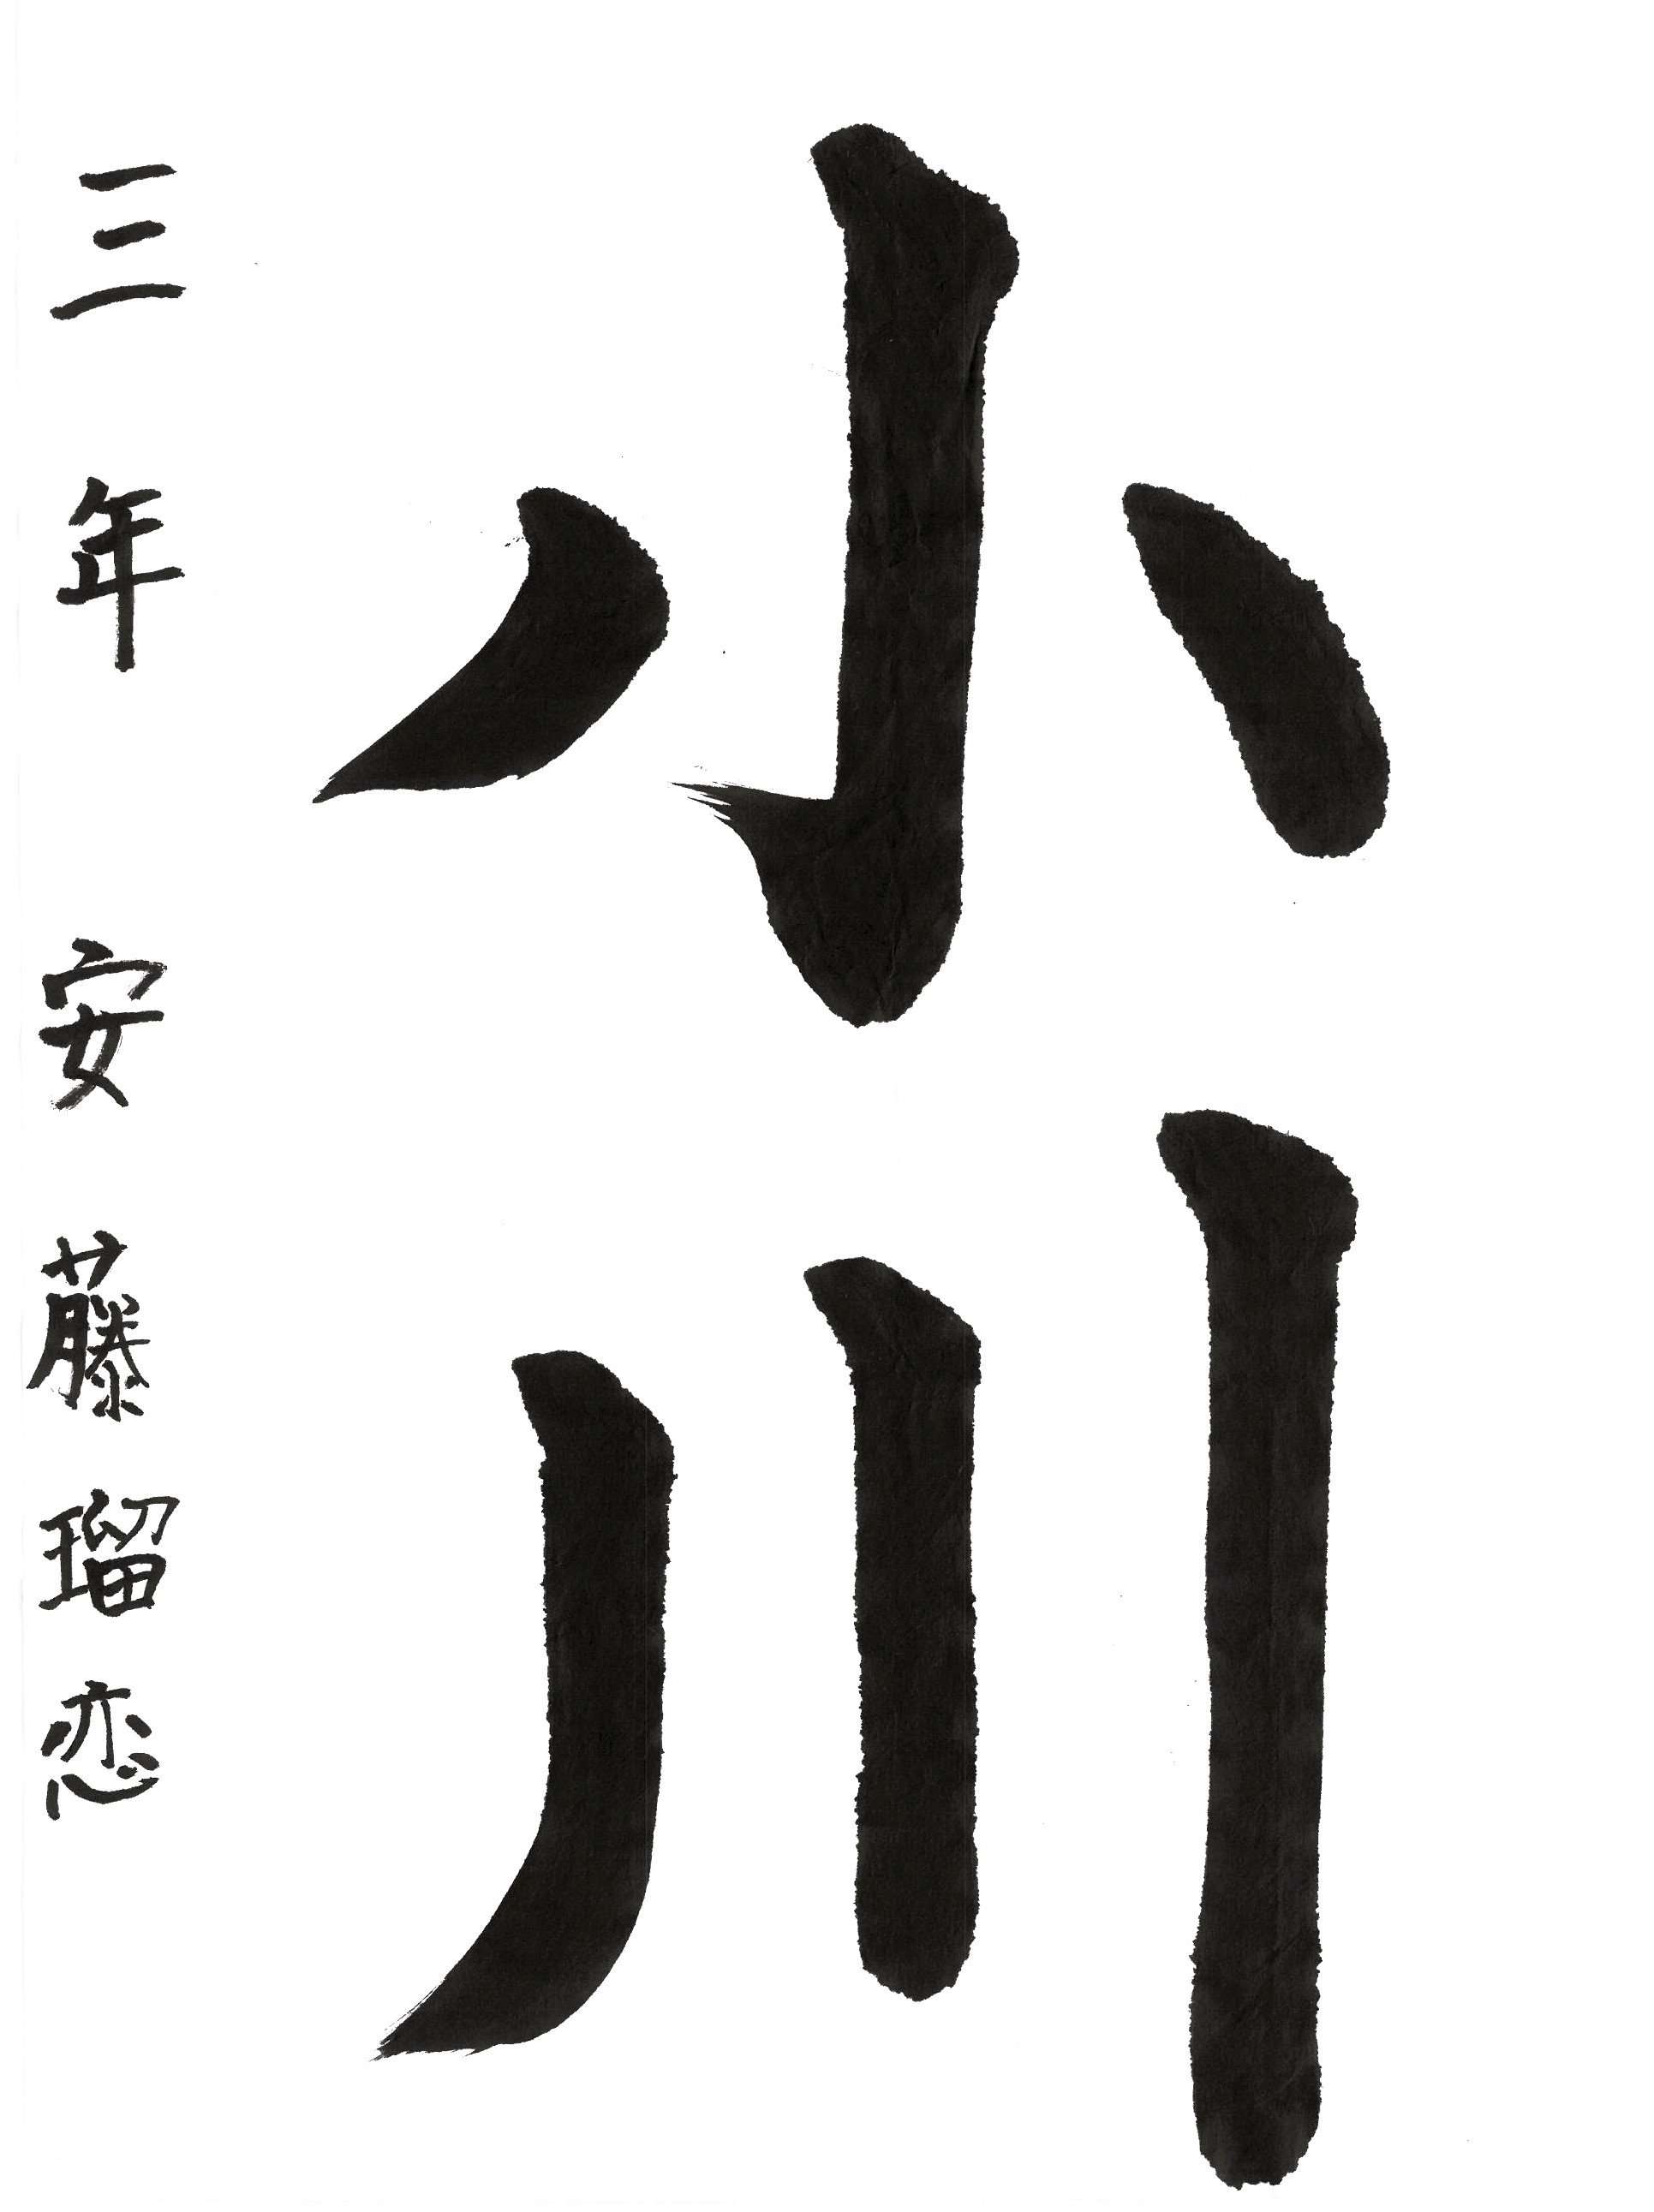 小川
三年 安藤瑠恋